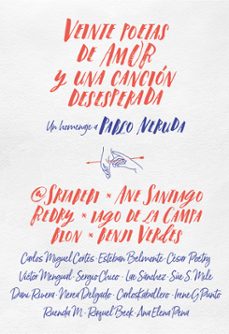 VEINTE POETAS
DE AMOR
Y UNA CANCIÓN
DESESPERADA
Un homenaje a PABLO NERUDA
@SRTABEBI × ANE SANTIAGO
REDRY × IAGO DE LA CAMPA
RION × BENJI VERDES
Carlos Miguel Cortés · Esteban Belmonte · César Poetry
Víctor Mengual · Sergio Chuco · Lae Sánchez · Sue S. Mile
Dani Rivera · Nerea Delgado · CarlosKaballero · Irene G Punto
Ruenda M. · Raquel Beck · Ana Elena Pena